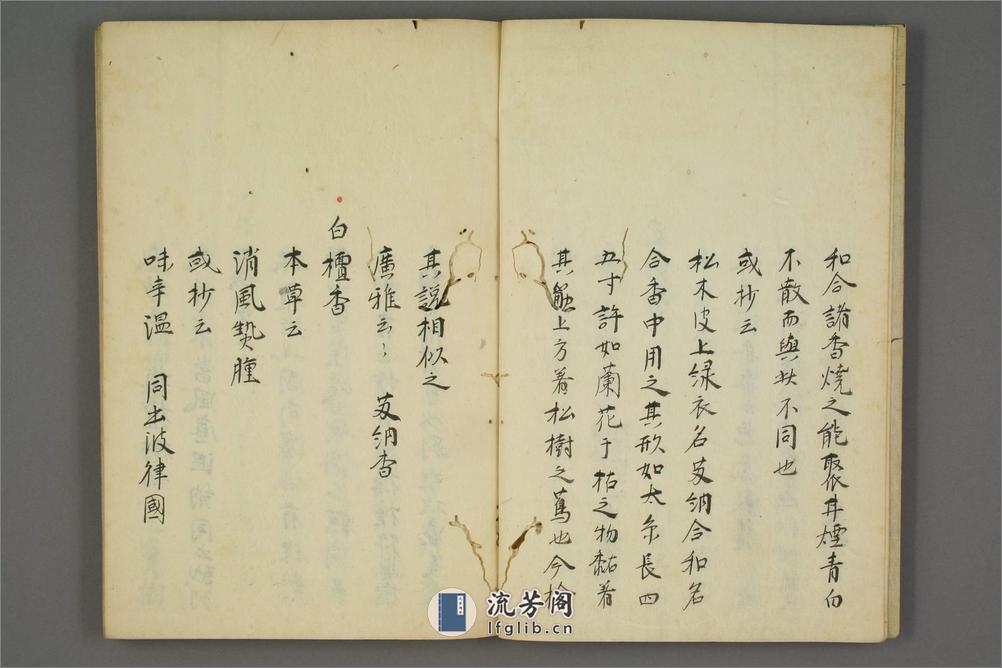 和合諸香燒之能聚其煙青白
不散而與艾不同也
或抄云
松木皮上綠衣名艾納合和名
合香中用之其形如太糸長四
五寸許如蘭花于枯之物黏着
其上方着松樹之蔦也今檢
其說相似之
廣雅云〻 艾納香
白檀香
本草云
消風熱腫
或抄云
味辛温 同出波律國
流芳阁
lfglib.cn